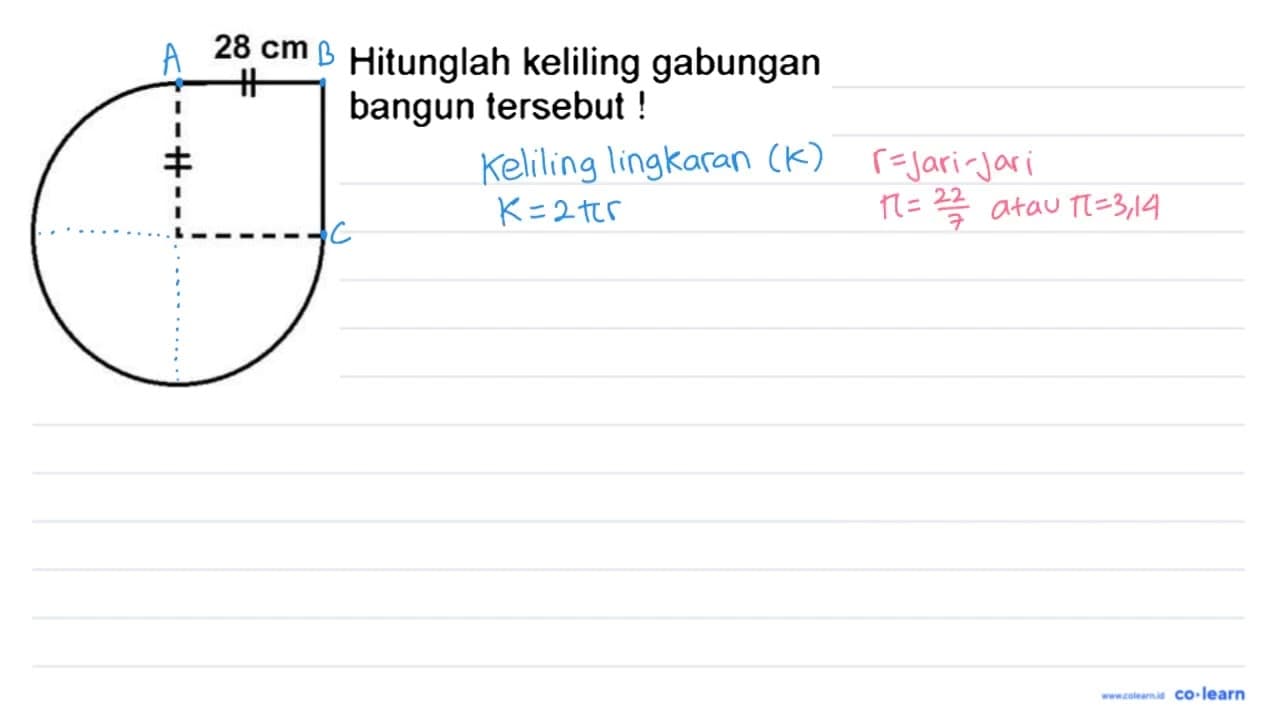 A 28 cm B
Hitunglah keliling gabungan
bangun tersebut !
Keliling lingkaran (K)
K = 2πr
r = Jari-Jari
π = 22/7 atau π = 3,14
C
www.colearn.id co·learn